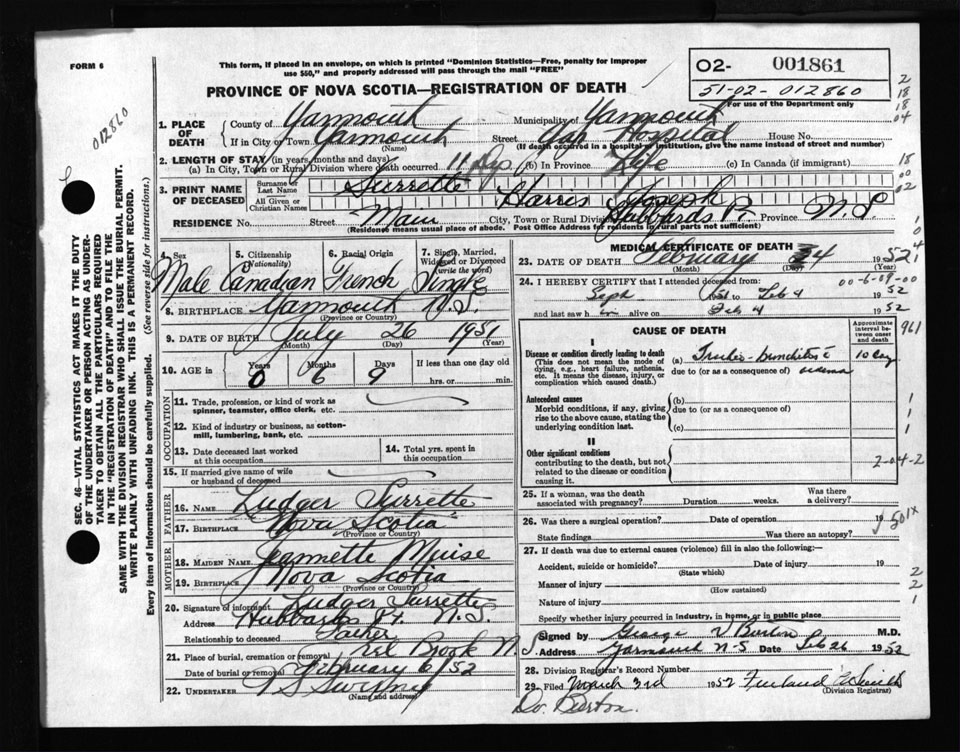 FORM 6
012860
This form, if placed in an envelope, on which is printed "Dominion Statistics—Free, penalty for improper
use $50," and properly addressed will pass through the mail "FREE"
PROVINCE OF NOVA SCOTIA—REGISTRATION OF DEATH
O2- 001861
51-02-012860
For use of the Department only
2
18
18
04
1. PLACE OF DEATH
County of Yarmouth Municipality of Yarmouth
If in City or Town Yarmouth Street Yar Hospital House No.
(Name) (If death occurred in a hospital or institution, give the name instead of street and number)
2. LENGTH OF STAY (in years, months and days)
(a) In City, Town or Rural Division where death occurred 11 dys (b) In Province Life (c) In Canada (if immigrant)
18
00
02
3. PRINT NAME OF DECEASED
Surname or Last Name Surrette
All Given or Christian Names Harris Joseph
RESIDENCE No. Street Main City, Town or Rural Division Hubbards Pt. Province N.S.
(Residence means usual place of abode. Post Office Address for rural parts not sufficient)
4. Sex Male
5. Citizenship (Nationality) Canadian
6. Racial Origin French
7. Single, Married, Widowed or Divorced (write the word) Single
8. BIRTHPLACE Yarmouth N.S.
(Province or Country)
9. DATE OF BIRTH July 26 1951
(Month) (Day) (Year)
10. AGE in Years 0 Months 6 Days 9 If less than one day old
hrs. or min.
OCCUPATION
11. Trade, profession, or kind of work as
spinner, teamster, office clerk, etc.
12. Kind of industry or business, as cotton-
mill, lumbering, bank, etc.
13. Date deceased last worked
at this occupation
14. Total yrs. spent in
this occupation
15. If married give name of wife
or husband of deceased
FATHER
16. NAME Ludger Surrette
17. BIRTHPLACE Nova Scotia
(Province or Country)
MOTHER
18. MAIDEN NAME Jeannette Muise
19. BIRTHPLACE Nova Scotia
(Province or Country)
20. Signature of informant Ludger Surrette
Address Hubbards Pt. N.S.
Relationship to deceased Father
21. Place of burial, cremation or removal Eel Brook N.S.
Date of burial or removal February 6/52
22. UNDERTAKER
(Name and address)
MEDICAL CERTIFICATE OF DEATH
23. DATE OF DEATH February 4 1952
(Month) (Day) (Year)
24. I HEREBY CERTIFY that I attended deceased from
Sept 1951 to Feb 4 1952
00-6-09-00
and last saw him alive on Feb 4 1952
CAUSE OF DEATH
Approximate interval between onset and death
961
I
Disease or condition directly leading to death
(This does not mean the mode of
dying, e.g., heart failure, asthenia,
etc. It means the disease, injury, or
complication which caused death.)
(a) Tracheo-bronchitis c̄ 10 day
due to (or as a consequence of) oedema
Antecedent causes
Morbid conditions, if any, giving
rise to the above cause, stating the
underlying condition last.
(b)
due to (or as a consequence of)
(c)
1
1
1
II
Other significant conditions
contributing to the death, but not
related to the disease or condition
causing it.
2-04-2
25. If a woman, was the death
associated with pregnancy? Duration weeks. Was there
a delivery?
26. Was there a surgical operation? Date of operation 19
501x
State findings Was there an autopsy?
27. If death was due to external causes (violence) fill in also the following:—
Accident, suicide or homicide? Date of injury 19
(State which)
Manner of injury
(How sustained)
Nature of injury
2
2
1
Specify whether injury occurred in industry, in home, or in public place
Signed by George V Burton M.D.
Address Yarmouth N-S Date Feb 26 1952
28. Division Registrar's Record Number
29. Filed March 3rd 1952
(Division Registrar)
Dr. Burton.
SEC. 46—VITAL STATISTICS ACT MAKES IT THE DUTY
OF THE UNDERTAKER OR PERSON ACTING AS UNDER-
TAKER TO OBTAIN ALL THE PARTICULARS REQUIRED
IN THE "REGISTRATION OF DEATH" AND TO FILE THE
SAME WITH THE DIVISION REGISTRAR WHO SHALL ISSUE THE BURIAL PERMIT.
WRITE PLAINLY WITH UNFADING INK. THIS IS A PERMANENT RECORD.
Every item of information should be carefully supplied. (See reverse side for instructions.)